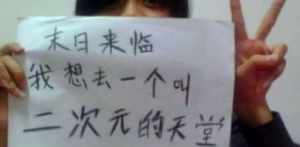 末日来临
我想去一个叫
二次元的天堂